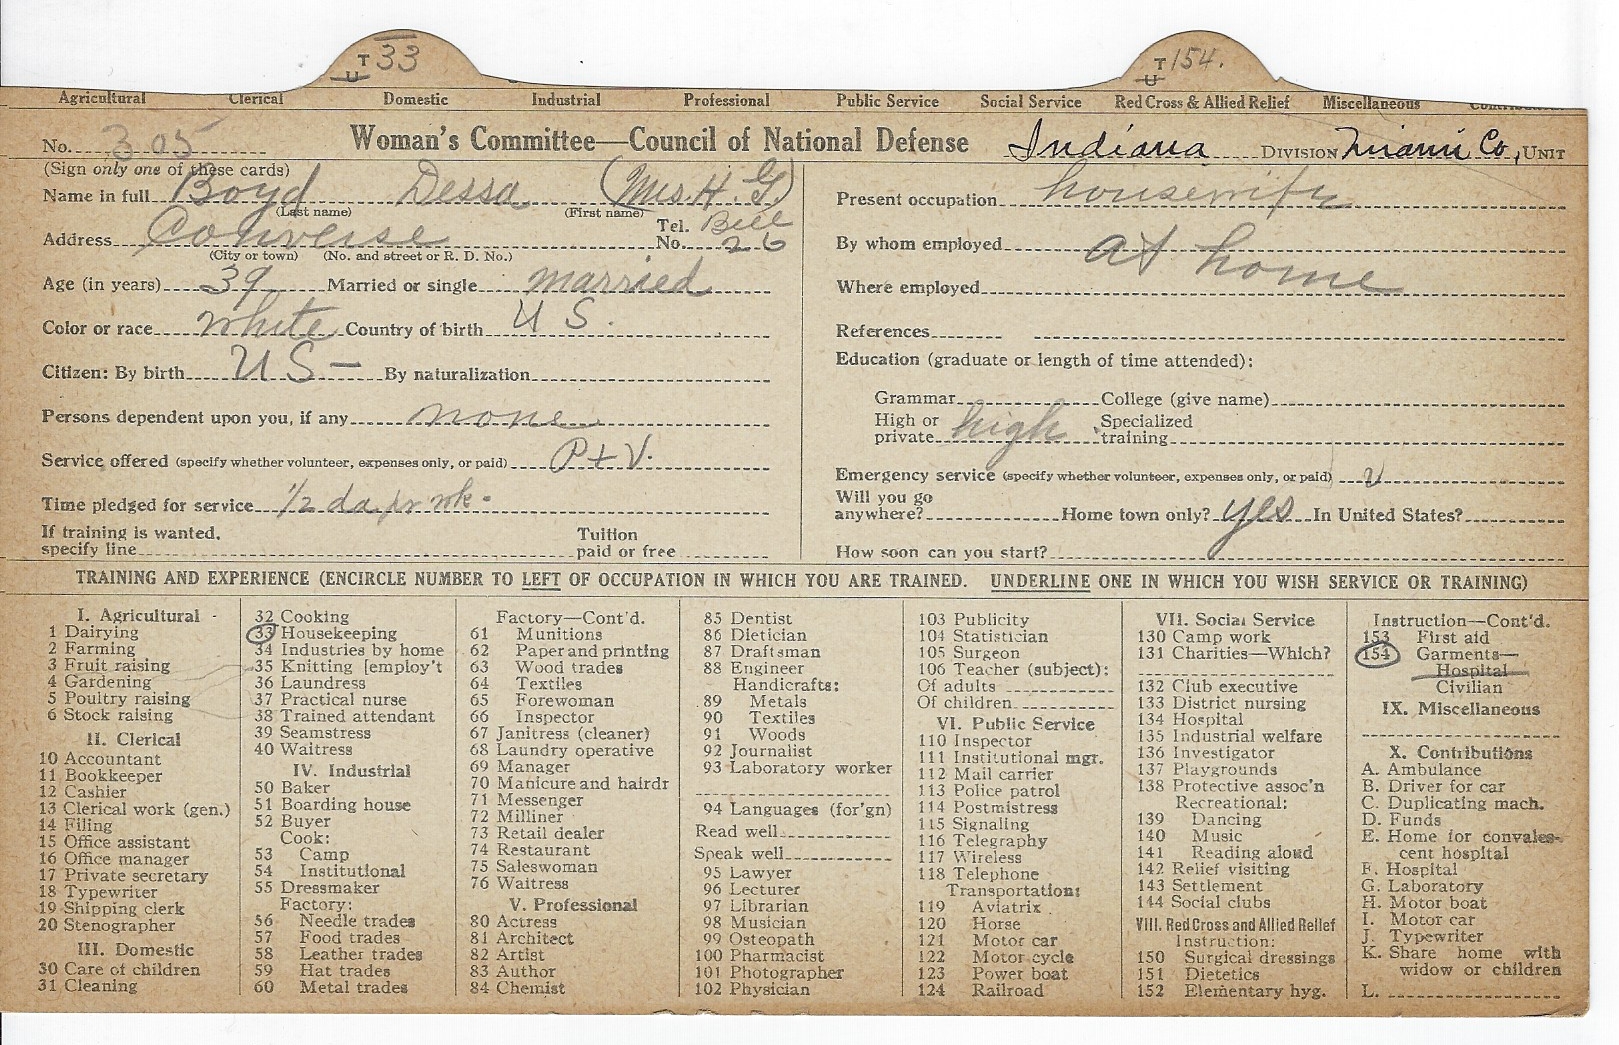 T 33
U
T 154.
U
Agricultural Clerical Domestic Industrial Professional Public Service Social Service Red Cross & Allied Relief Miscellaneous
No. 305 Woman's Committee—Council of National Defense Indiana DIVISION Miami Co, UNIT
(Sign only one of these cards)
Name in full Boyd Dessa (Mrs. H. G.)
(Last name) (First name)
Address Converse Tel. No. Bell 26
(City or town) (No. and street or R. D. No.)
Age (in years) 39 Married or single married
Color or race white Country of birth U S.
Citizen: By birth US — By naturalization
Persons dependent upon you, if any none
Service offered (specify whether volunteer, expenses only, or paid) P + V.
Time pledged for service 1/2 da pr wk.
If training is wanted, specify line Tuition paid or free
Present occupation housewife
By whom employed at home
Where employed
References
Education (graduate or length of time attended):
Grammar College (give name)
High or private high Specialized training
Emergency service (specify whether volunteer, expenses only, or paid) v
Will you go anywhere? Home town only? yes In United States?
How soon can you start?
TRAINING AND EXPERIENCE (ENCIRCLE NUMBER TO LEFT OF OCCUPATION IN WHICH YOU ARE TRAINED. UNDERLINE ONE IN WHICH YOU WISH SERVICE OR TRAINING)
I. Agricultural
1 Dairying
2 Farming
3 Fruit raising
4 Gardening
5 Poultry raising
6 Stock raising
II. Clerical
10 Accountant
11 Bookkeeper
12 Cashier
13 Clerical work (gen.)
14 Filing
15 Office assistant
16 Office manager
17 Private secretary
18 Typewriter
19 Shipping clerk
20 Stenographer
III. Domestic
30 Care of children
31 Cleaning
32 Cooking
33 Housekeeping
34 Industries by home
35 Knitting [employ't
36 Laundress
37 Practical nurse
38 Trained attendant
39 Seamstress
40 Waitress
IV. Industrial
50 Baker
51 Boarding house
52 Buyer
Cook:
53 Camp
54 Institutional
55 Dressmaker
Factory:
56 Needle trades
57 Food trades
58 Leather trades
59 Hat trades
60 Metal trades
Factory—Cont'd.
61 Munitions
62 Paper and printing
63 Wood trades
64 Textiles
65 Forewoman
66 Inspector
67 Janitress (cleaner)
68 Laundry operative
69 Manager
70 Manicure and hairdr
71 Messenger
72 Milliner
73 Retail dealer
74 Restaurant
75 Saleswoman
76 Waitress
V. Professional
80 Actress
81 Architect
82 Artist
83 Author
84 Chemist
85 Dentist
86 Dietician
87 Draftsman
88 Engineer
Handicrafts:
89 Metals
90 Textiles
91 Woods
92 Journalist
93 Laboratory worker
94 Languages (for'gn)
Read well
Speak well
95 Lawyer
96 Lecturer
97 Librarian
98 Musician
99 Osteopath
100 Pharmacist
101 Photographer
102 Physician
103 Publicity
104 Statistician
105 Surgeon
106 Teacher (subject):
Of adults
Of children
VI. Public Service
110 Inspector
111 Institutional mgr.
112 Mail carrier
113 Police patrol
114 Postmistress
115 Signaling
116 Telegraphy
117 Wireless
118 Telephone
Transportation:
119 Aviatrix
120 Horse
121 Motor car
122 Motor cycle
123 Power boat
124 Railroad
VII. Social Service
130 Camp work
131 Charities—Which?
132 Club executive
133 District nursing
134 Hospital
135 Industrial welfare
136 Investigator
137 Playgrounds
138 Protective assoc'n
Recreational:
139 Dancing
140 Music
141 Reading aloud
142 Relief visiting
143 Settlement
144 Social clubs
VIII. Red Cross and Allied Relief
Instruction:
150 Surgical dressings
151 Dietetics
152 Elementary hyg.
Instruction—Cont'd.
153 First aid
154 Garments—
Hospital
Civilian
IX. Miscellaneous
X. Contributions
A. Ambulance
B. Driver for car
C. Duplicating mach.
D. Funds
E. Home for convales-
cent hospital
F. Hospital
G. Laboratory
H. Motor boat
I. Motor car
J. Typewriter
K. Share home with
widow or children
L.